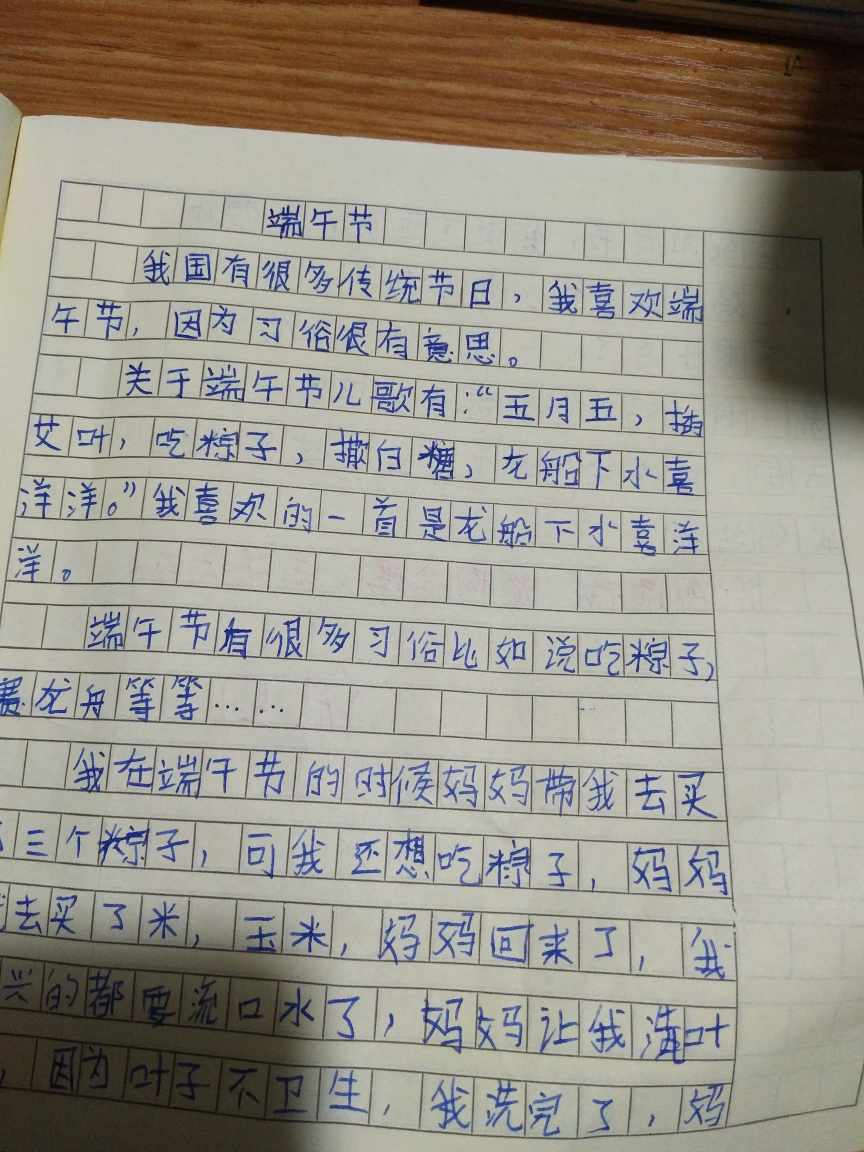 端午节
我国有很多传统节日，我喜欢端
午节，因为习俗很有意思。
关于端午节儿歌有：“五月五，插
艾叶，吃粽子，撒白糖，龙船下水喜
洋洋。”我喜欢的一首是龙船下水喜洋
洋。
端午节有很多习俗比如说吃粽子，
赛龙舟等等……
我在端午节的时候妈妈带我去买
三个粽子，可我还想吃粽子，妈妈
去买了米，玉米，妈妈回来了，我
兴的都要流口水了，妈妈让我清叶
，因为叶子不卫生，我洗完了，妈